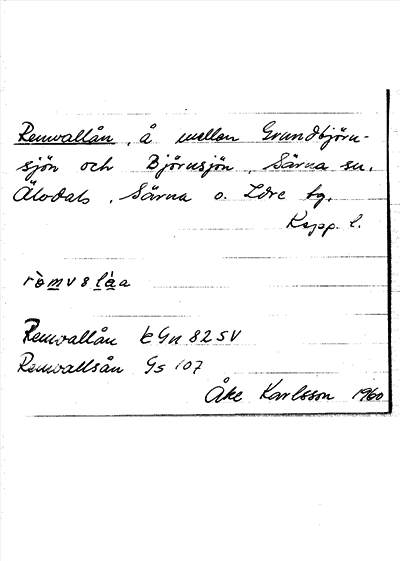 Remvallån, å mellan Grundbjörn-
sjön och Björnsjön, Särna sn.
Älvdals, Särna o. Idre tg.
Kopp. l.
ròmv8låa
Remvallån EGn 82 SV
Remvallsån Gs 107
Åke Karlsson 1960